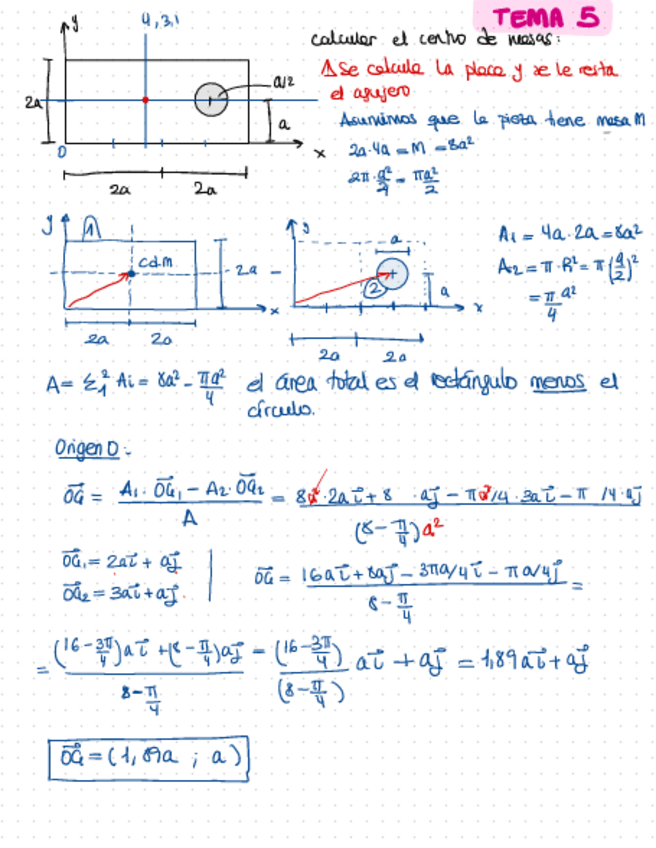 TEMA 5
y
4,3,1
calcular el centro de masas:
a/2
⚠Se calcula la placa y se le resta
el agujero
2a
a
Asumimos que la pieza tiene masa M
0
x
2a·4a = M = 8a²
2a
2a
2π·a²/4 = πa²/2
y
1
cdm
2a
x
2a
2a
y
a
2
a
x
2a
2a
A₁ = 4a·2a = 8a²
A₂ = π·R² = π(a/2)²
= π/4 a²
A = Σ₁² Ai = 8a² - πa²/4 el área total es el rectángulo menos el
círculo.
Origen O:
OG = A₁·OG₁ - A₂·OG₂ / A = 8a²·2ai + 8 ·aj - πa²/4·3ai - π /4·aj / (8 - π/4)a²
OG₁ = 2ai + aj
OG₂ = 3ai + aj
OG = 16ai + 8aj - 3πa/4i - πa/4j / 8 - π/4 =
= (16 - 3π/4)ai + (8 - π/4)aj / 8 - π/4 = (16 - 3π/4) / (8 - π/4) ai + aj = 1,89ai + aj
OG = (1,89a ; a)